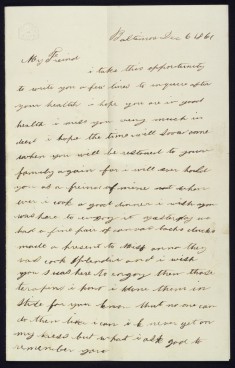 Baltimore Dec 6 1861
My Friend
i take this opportunity
to write you a few lines to inquire after
your health i hope you are in good
health i miss you very much in
deed i hope the time will soon come
when you will be restored to your
family again for i will ever hold
you as a friend of mine and when
ever i cook a good dinner i wish you
was here to enjoy it yesterday we
had a fine pair of canvas backs ducks
made a present to Miss they
was cook splendid and i wish
you was here to enjoy them those
terapins i hav i stew them in
Stile for you know that no one can
do them like i can i never get on
my knees but what i ask god to
remember you